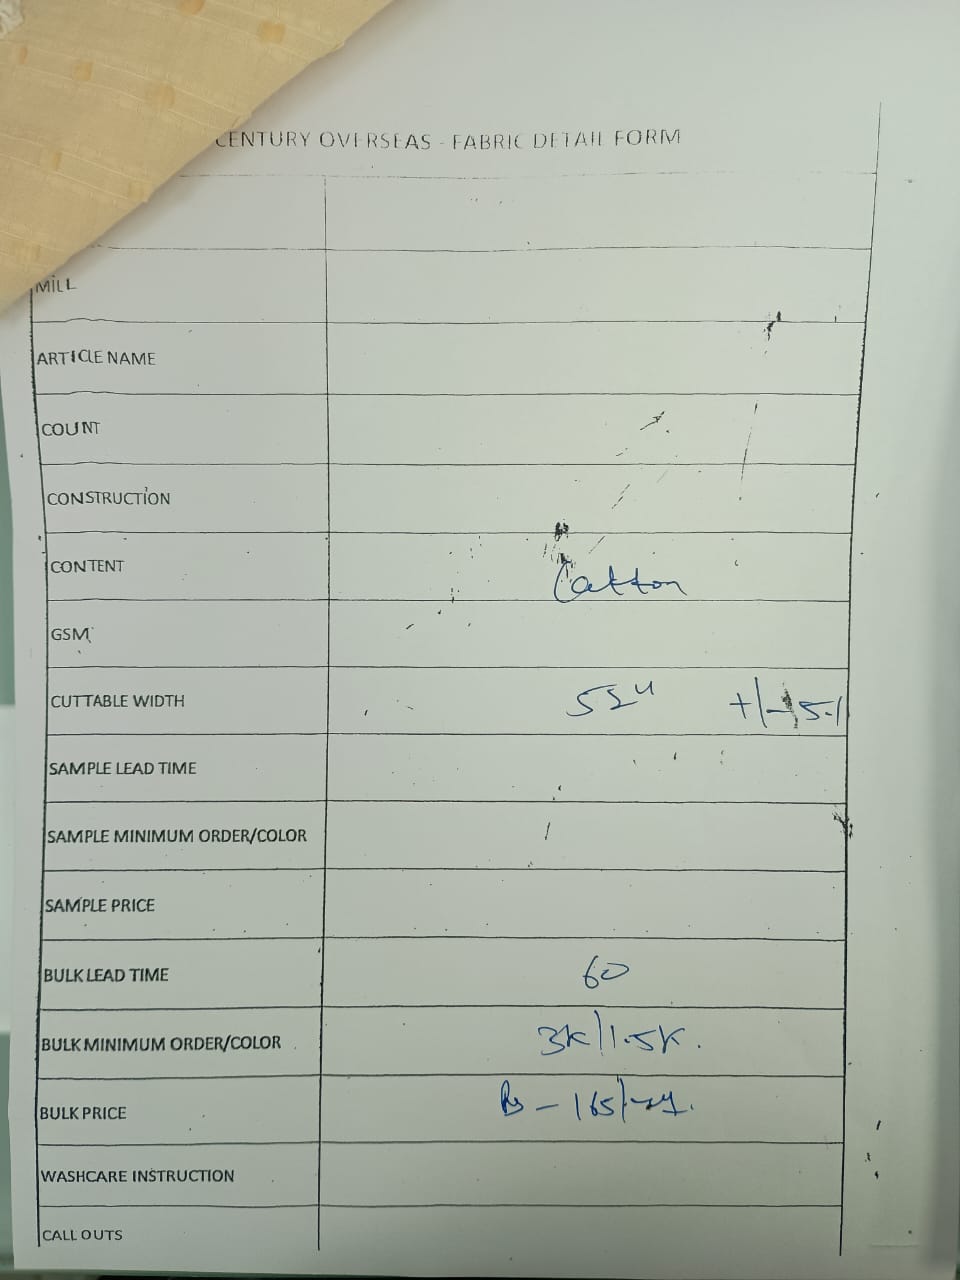 CENTURY OVERSEAS - FABRIC DETAIL FORM
MILL
ARTICLE NAME
COUNT
CONSTRUCTION
CONTENT Cotton
GSM
CUTTABLE WIDTH 52" +/- 5%
SAMPLE LEAD TIME
SAMPLE MINIMUM ORDER/COLOR
SAMPLE PRICE
BULK LEAD TIME 60
BULK MINIMUM ORDER/COLOR 3K/1.5K.
BULK PRICE Rs - 165/-
WASHCARE INSTRUCTION
CALL OUTS